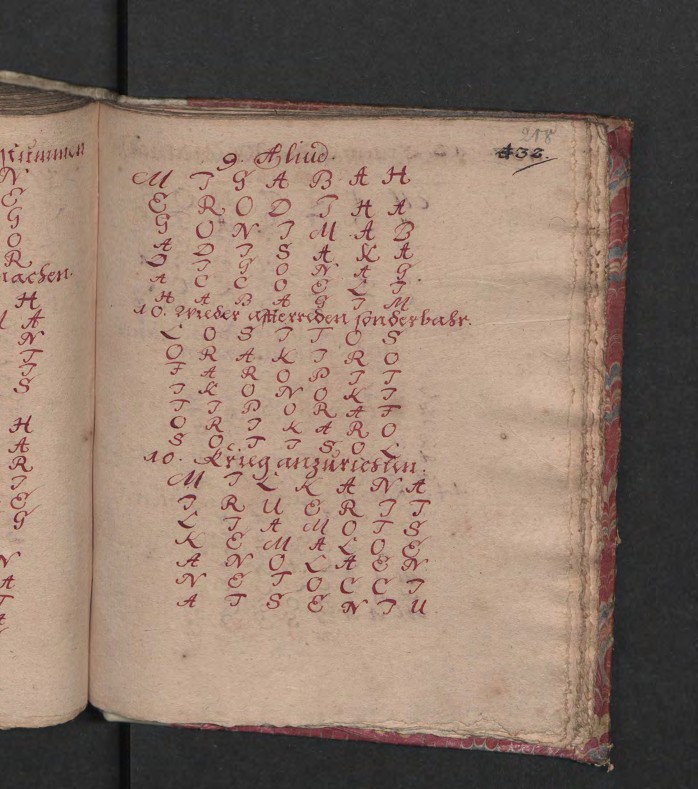 218
432.
9. Aliud.
M I G A B A H
E R O D I H A
G O N I M A B
A D I S A K A
L I G O N A G.
A C C O E L I
H A B A G I M
10. Wieder affterreden sonderbahr.
L O S I T O S
O R A K I R O
F A R O P I T
I K O N O K I
T I P O R A F
O R I K A R O
S O T I S O L
10. Krieg anzurichten.
M I L K A N A
I R U E R I T
L I A M O T S
K E M A L O E
A N O L A E N
N E T O C C I
A T S E N I U
N
E
G
O
R
machen.
H
A
N
H
A
R
I
E
G
N
A